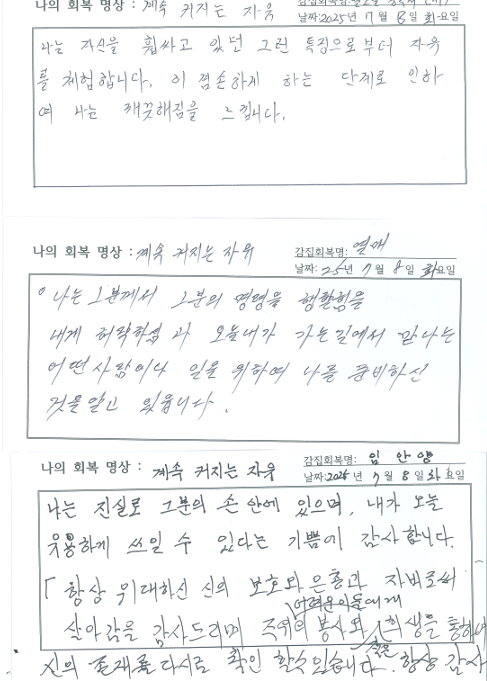 나의 회복 명상 : 계속 커지는 자유
날짜:2025년 7월 8일 화요일
나는 자신을 휩싸고 있던 그런 특징으로부터 자유
를 체험합니다. 이 겸손하게 하는 단계로 인하
여 나는 깨끗해짐을 느낍니다.
나의 회복 명상 : 계속 커지는 자유
감집회복명: 열매
날짜: 25년 7월 8일 화요일
나는 그분께서 그분의 명령을 행할힘을
내게 허락하심 과 오늘내가 가는길에서 만나는
어떤사람이나 일을 위하여 나를 준비하신
것을알고 있읍니다.
나의 회복 명상 : 계속 커지는 자유
감집회복명: 임안양
날짜:2025년 7월 8일 화요일
나는 진실로 그분의 손안에 있으며, 내가 오늘
유용하게 쓰일 수 있다는 기쁨에 감사합니다.
「항상 위대하신 신의 보호와 은총과 자비로써
어려운이들에게
살아감을 감사드리며 봉사와 희생을 통하여
작은
신의 존재를 다시금 확인 할수있습니다. 항상 감사